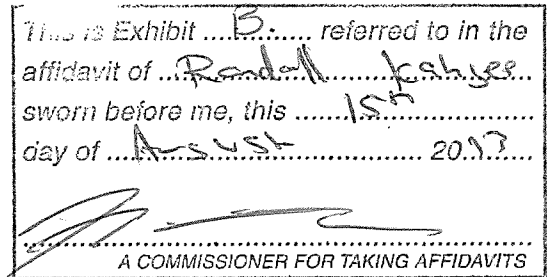 This is Exhibit ....B...... referred to in the
affidavit of ...Randall.......Kahgee..
sworn before me, this .......15th........
day of ....August............................ 2013......
A COMMISSIONER FOR TAKING AFFIDAVITS